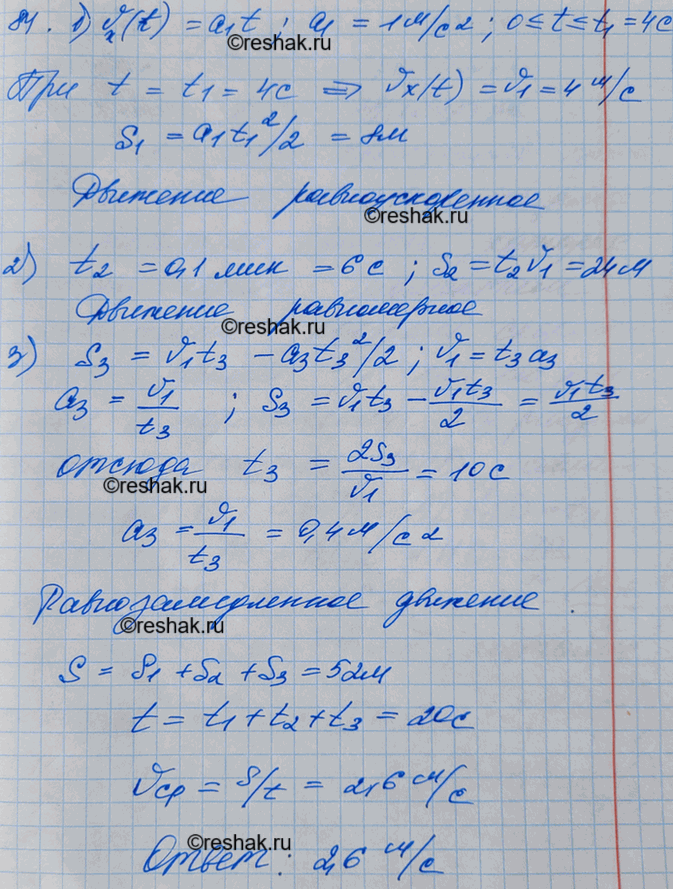 84. 1) vₓ(t) = a₁t ; a₁ = 1 м/с2 ; 0 ≤ t ≤ t₁ = 4с
©reshak.ru
При t = t₁ = 4с ⇒ vx(t) = v₁ = 4 м/с
S₁ = a₁t₁²/2 = 8м
Движение равноускоренное
©reshak.ru
2) t₂ = 0,1 мин = 6с ; S₂ = t₂v₁ = 24м
Движение равномерное
©reshak.ru
3) S₃ = v₁t₃ – a₃t₃²/2 ; v₁ = t₃a₃
a₃ = v₁/t₃ ; S₃ = v₁t₃ – v₁t₃/2 = v₁t₃/2
отсюда t₃ = 2S₃/v₁ = 10с
©reshak.ru
a₃ = v₁/t₃ = 0,4 м/с2
Равнозамедленное движение.
©reshak.ru
S = S₁ + S₂ + S₃ = 52м
t = t₁ + t₂ + t₃ = 20с
vср = S/t = 2,6 м/с
©reshak.ru
Ответ: 2,6 м/с